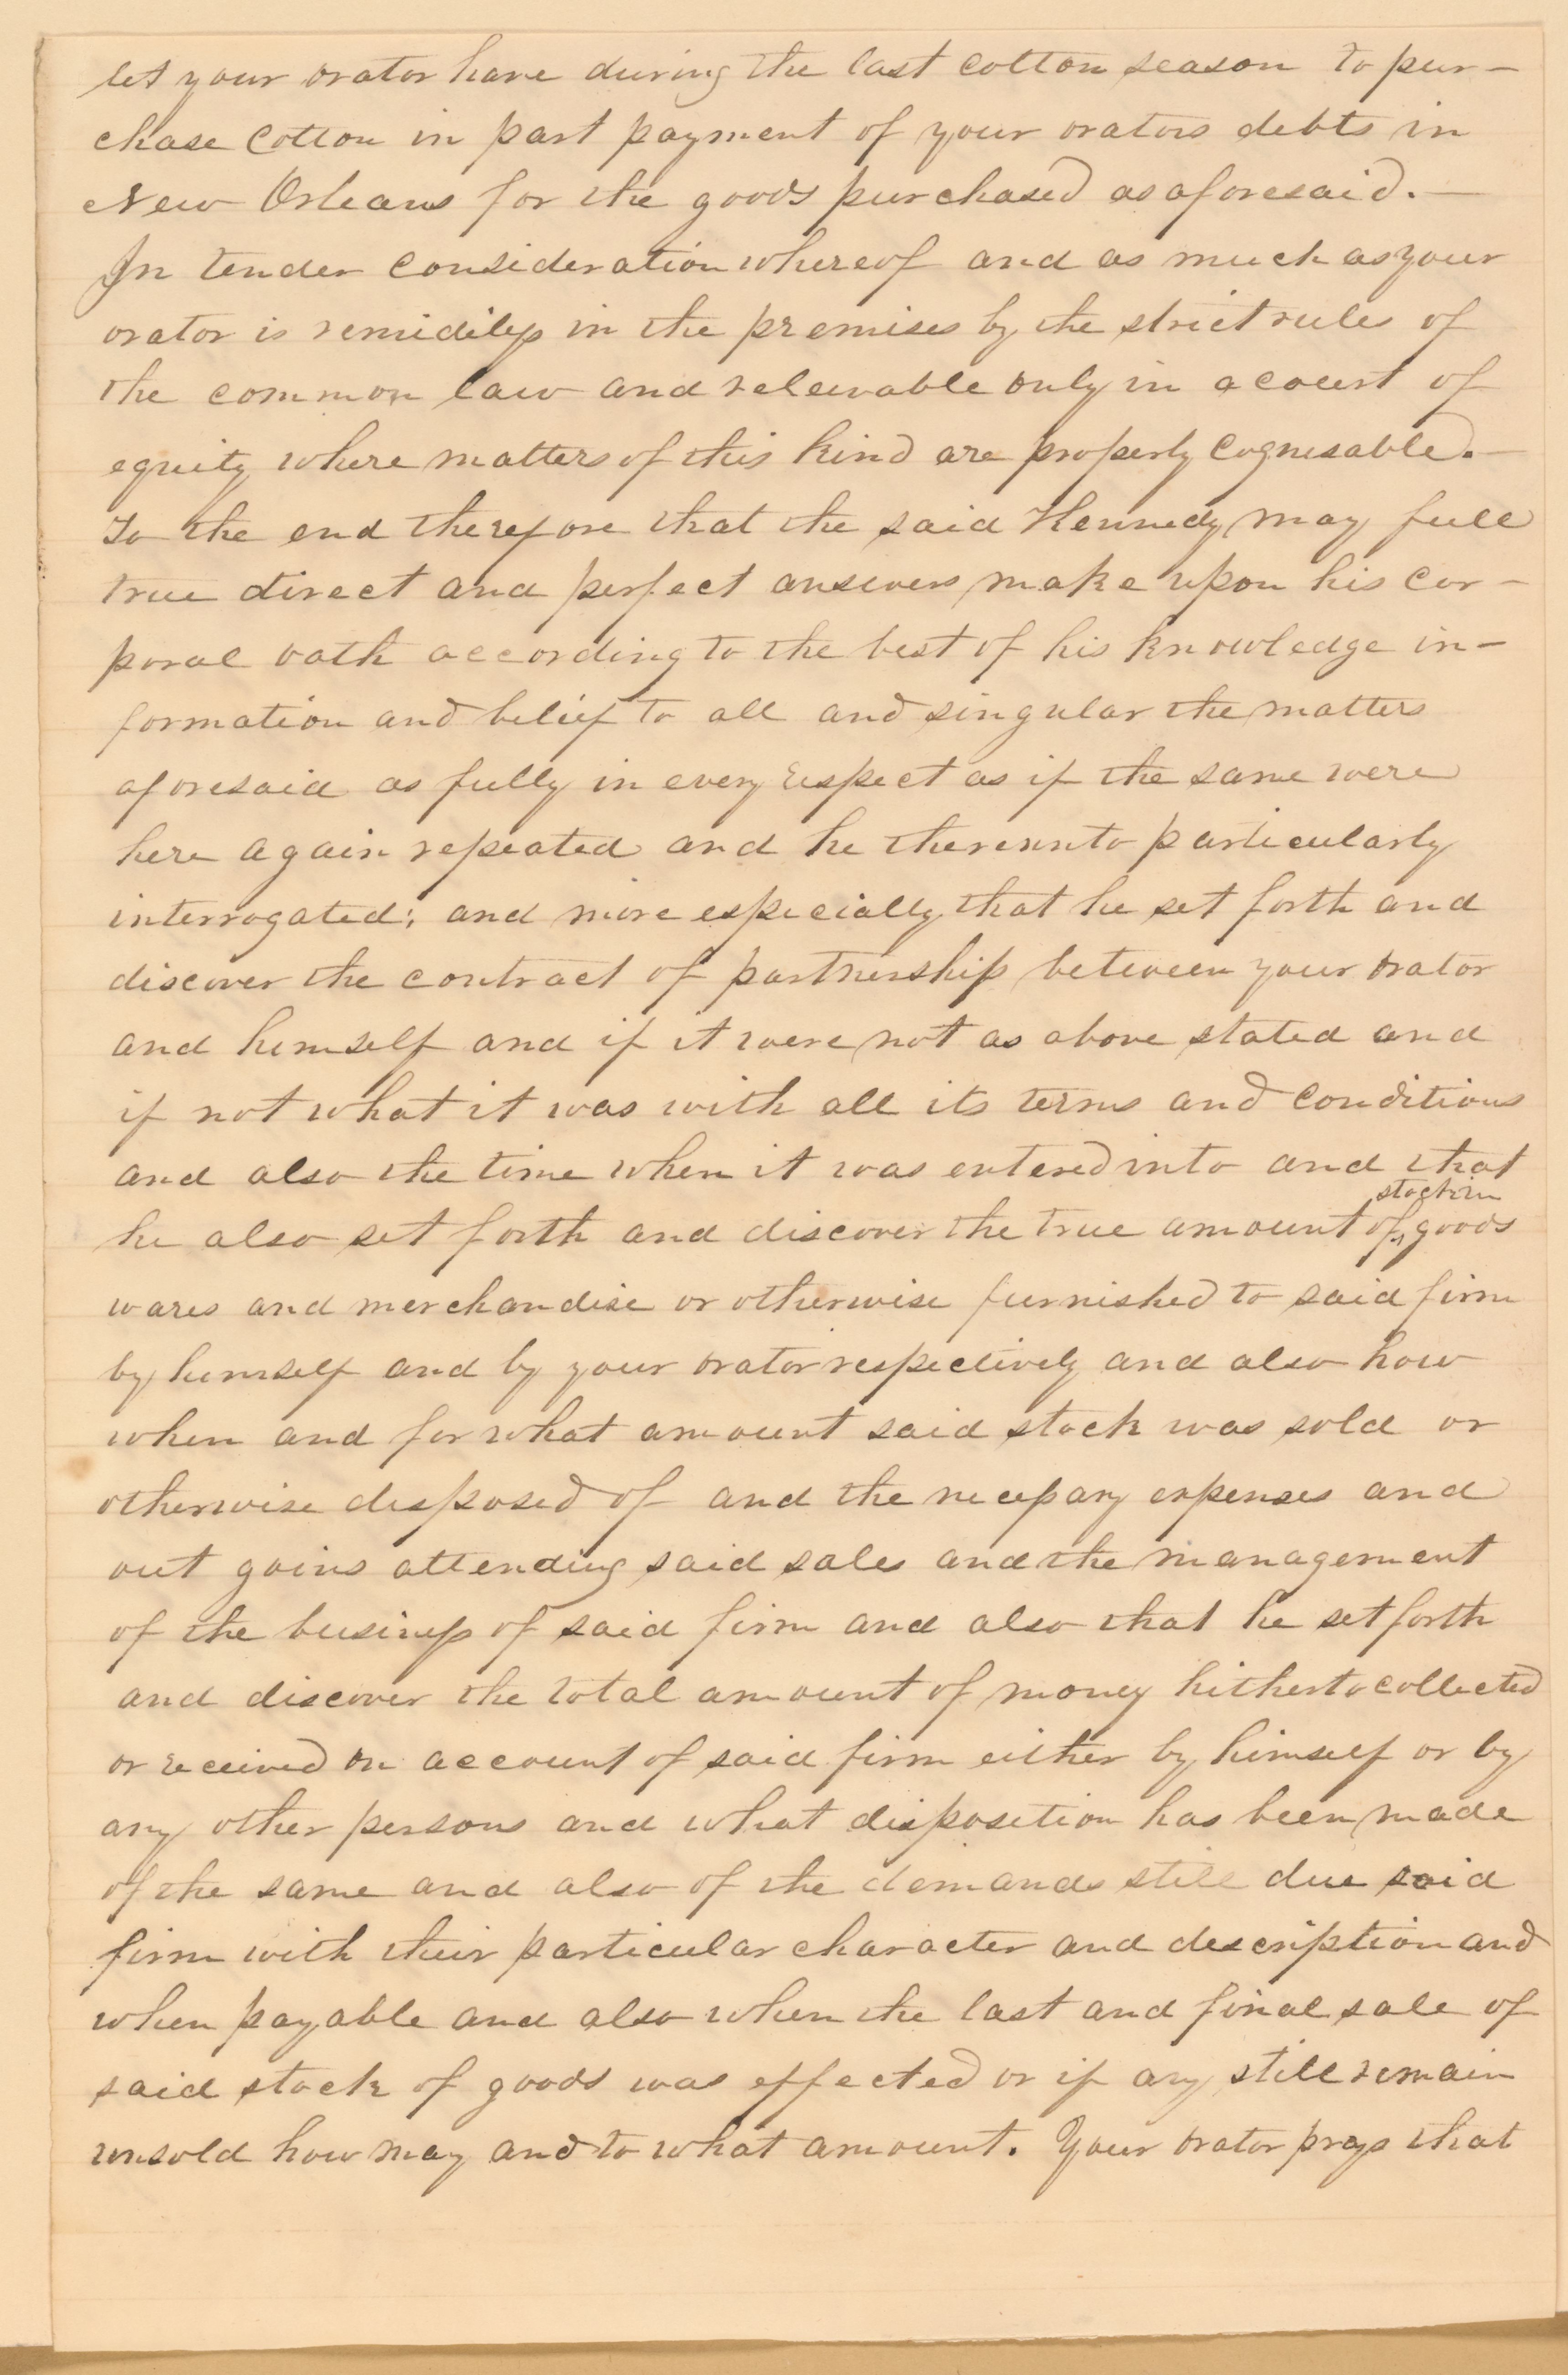 let your orator have during the last cotton season to pur-
chase Cotton in part payment of your orators debts in
New Orleans for the goods purchased as aforesaid. —
In tender consideration whereof and as much as your
orator is remidiless in the premises by the strict rules of
the common law and releivable only in a court of
equity where matters of this kind are properly Cognisable. —
To the end therefore that the said Kennedy may full
true direct and perfect answers make upon his cor-
poral oath according to the best of his knowledge in-
formation and belief to all and singular the matters
aforesaid as fully in every respect as if the same were
here again repeated and he thereunto particularly
interrogated; and more especially that he set forth and
discover the contract of partnership between your orator
and himself and if it were not as above stated and
if not what it was with all its terms and conditions
and also the time when it was entered into and that
stock in
he also set forth and discover the true amount of goods
wares and merchandise or otherwise furnished to said firm
by himself and by your orator respectively and also how
when and for what amount said stock was sold or
otherwise disposed of and the necessary expenses and
out goins attending said sales and the management
of the business of said firm and also that he set forth
and discover the total amount of money hitherto collected
or received on account of said firm either by himself or by
any other persons and what disposition has been made
of the same and also of the demands still due said
firm with their particular character and description and
when payable and also when the last and final sale of
said stock of goods was effected or if any still remain
unsold how may and to what amount. Your orator prays that